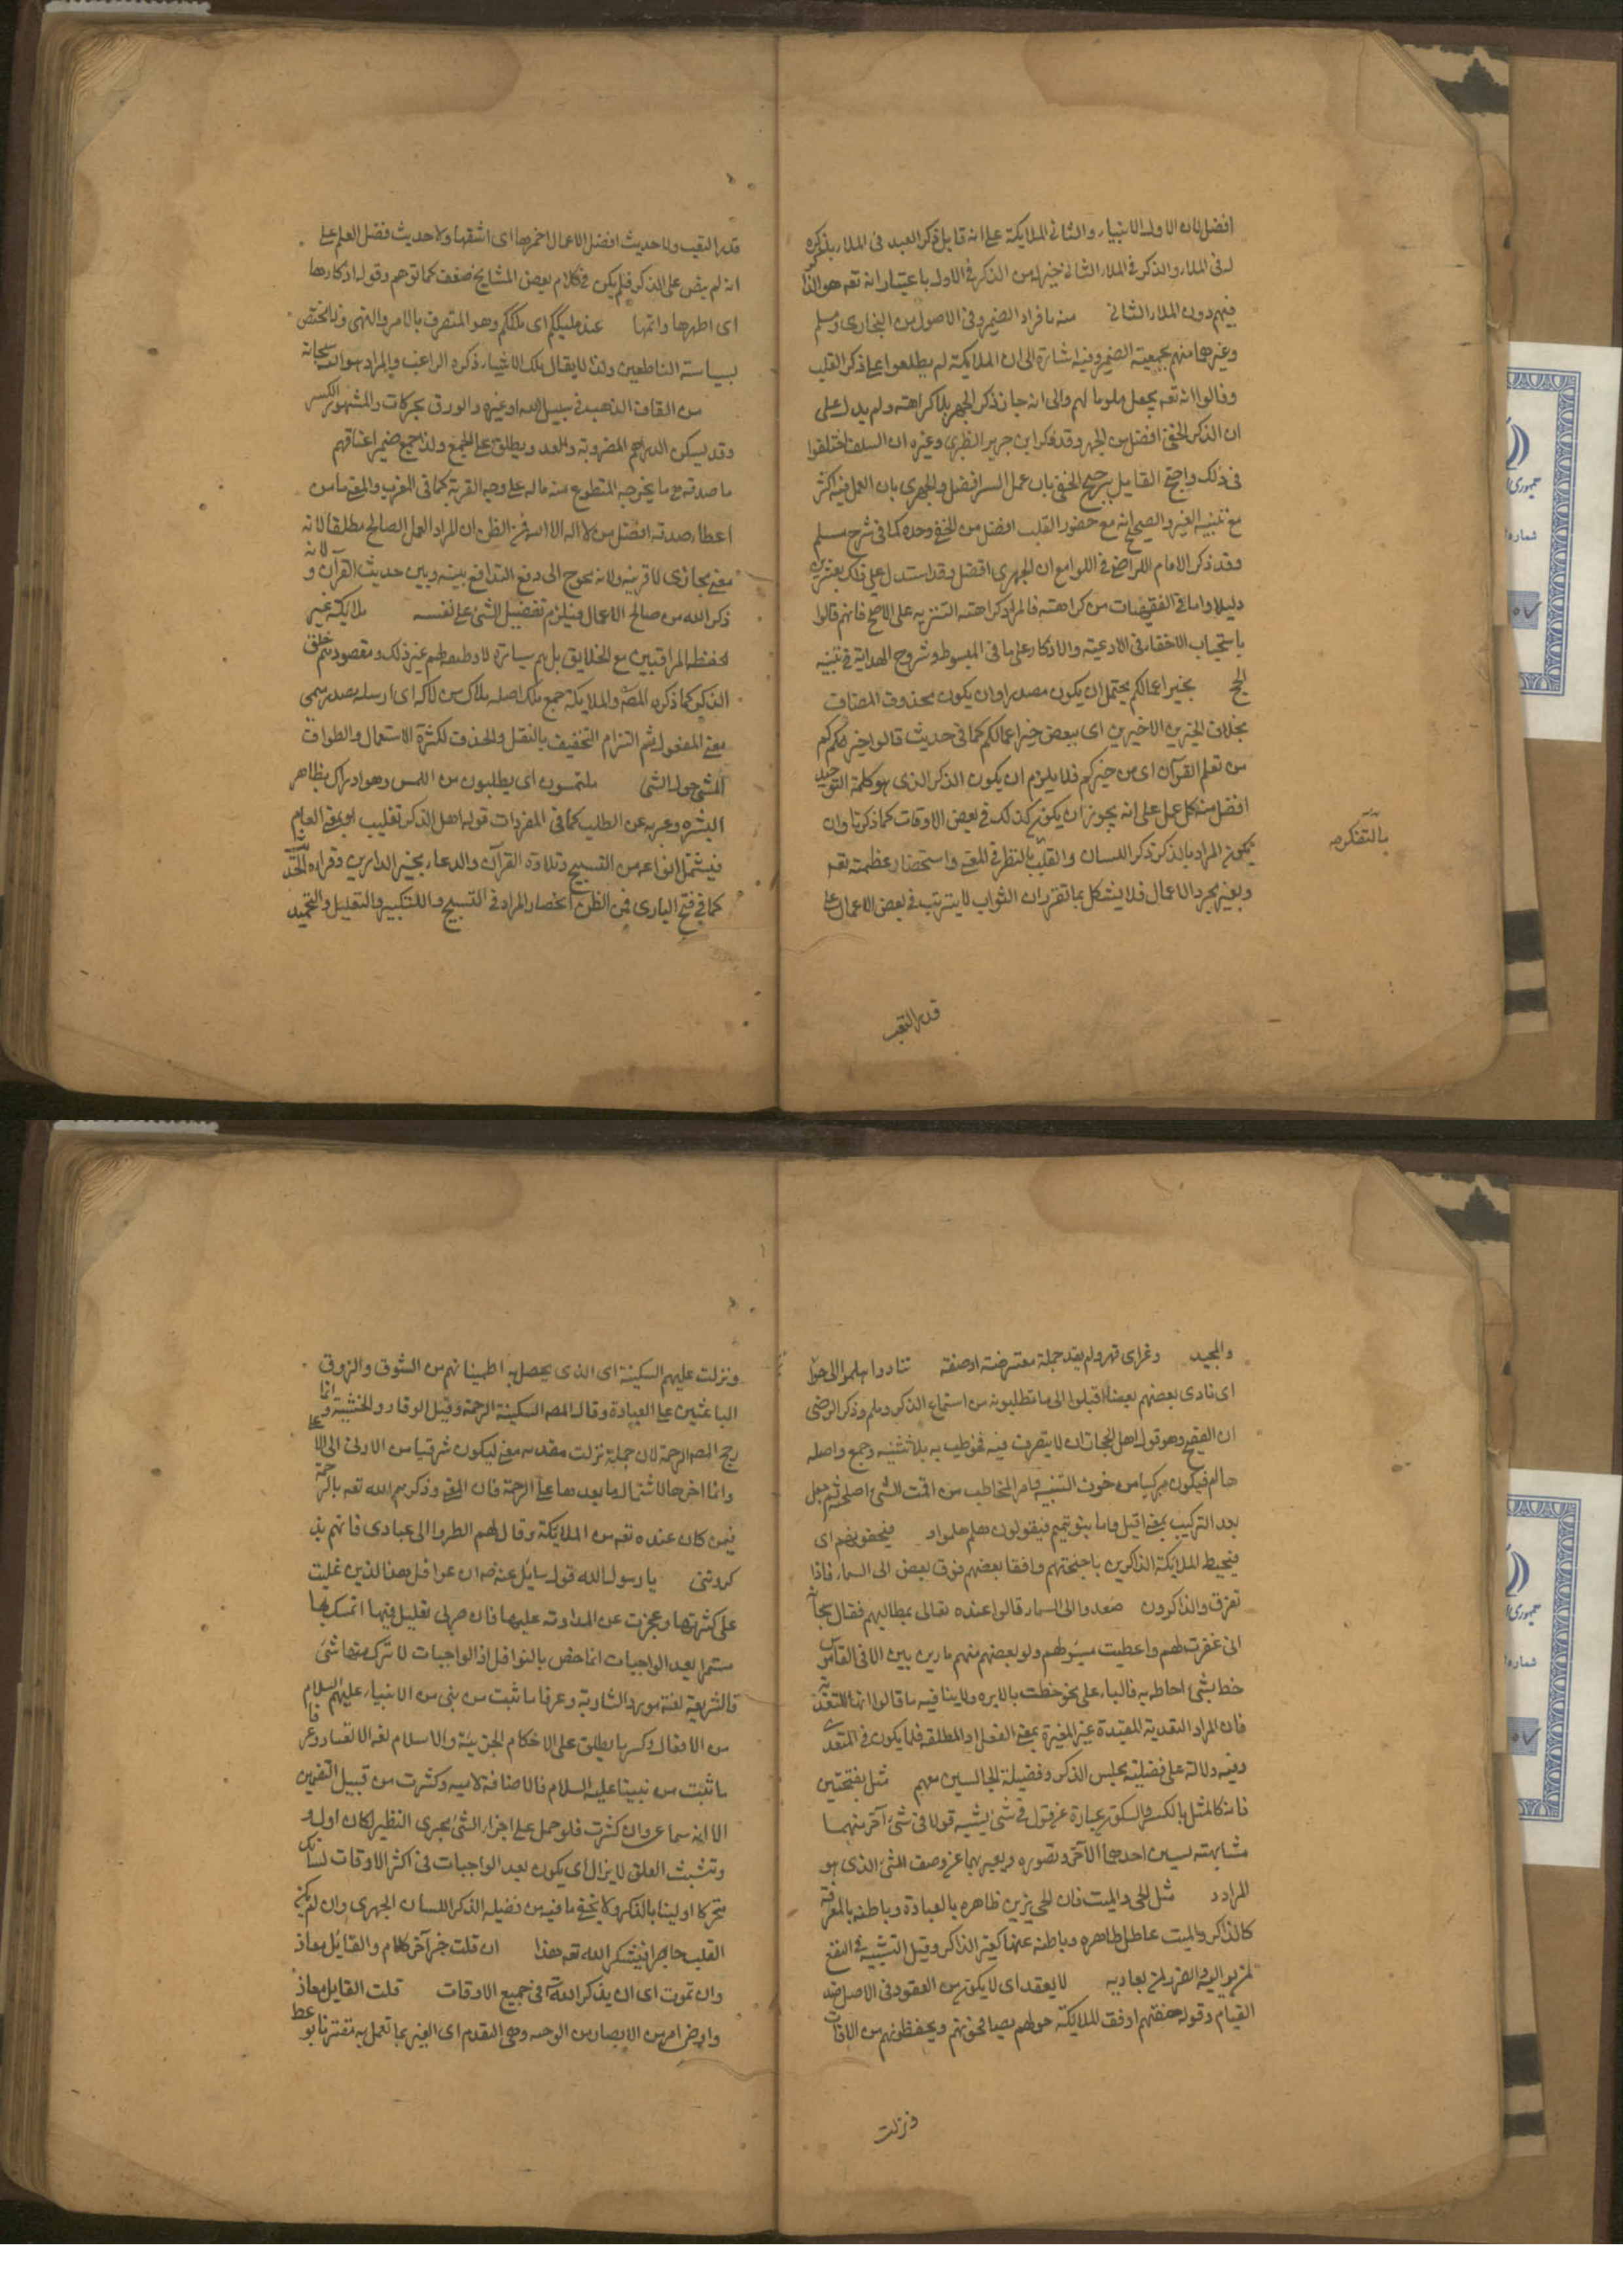 افضل لان الاول الانبياء والثانى الملايكة على انه قابل ذكر العبد فى الملاء بذكره
له فى الملاء والذكر فى الملاء الثانى خير له من الذكر فى الاول باعتبار انه تعه هو الذاكر
فيهم دون الملاء الثانى منه بافراد الضمير وفى الاصول من البخارى ومسلم
وغيرهما منهم بجمعية الضمير وفيه اشارة الى ان الملايكة لم يطلعوا على ذكر القلب
وقالوا انه تعه يجعل علوما لهم والى انه جاز ذكر الجهر بلا كراهته ولم يدل على
ان الذكر الخفى افضل من الجهر وقد ذكر ابن جرير الطبرى وغيره ان السلف اختلفوا
فى ذلك واحتج القايل بترجيح الخفى بان عمل السر افضل والجهرى بان العمل فيه اكثر
مع تنبيه الغير والصحيح انه مع حضور القلب افضل من الخفى وحده كما فى شرح مسلم
وقد ذكر الامام الرازى فى اللوامع ان الجهرى افضل وقد استدل على ذلك بعشرين
دليلا واما فى الفقهيات من كراهته فالمراد كراهته التنزيه على الاصح فانهم قالوا
باستحباب الاخفاء فى الادعية والاذكار على ما فى المبسوط وشروح الهداية فى تنبيه
الحج بخير اعمالكم يحتمل ان يكون مصدرا وان يكون محذوف المضاف
بخلاف الخيرين الاخيرين اى ببعض خير اعمالكم كما فى حديث قالوا خيركم
من تعلم القرآن اى من خيركم فلا يلزم ان يكون الذكر الذى هو كلمة التوحيد
افضل من كل عمل على انه يجوز ان يكون كذلك فى بعض الاوقات كما ذكرنا وان
يكون المراد بالذكر ذكر اللسان والقلب بالنظر فى المعنى واستحضار عظمته تعه
وبغير مجرد الاعمال فلا يشكل بما تقرر ان الثواب لا يترتب فى بعض الاعمال على
بالتفكر
قدر التعب
قدر التعب ولا حديث افضل الاعمال احمزها اى اشقها ولا حديث فضل العلم على
انه لم يفض على الذكر فلم يكن فى كلام بعض المشايخ ضعف كما توهم وقوله ازكاها
اى اطهرها وانمها عند مليككم اى ملككم وهو المتصرف بالامر والنهى وذا مختص
بسياسة الناطقين ولذا لا يقال ملك الاشياء ذكره الراغب والمراد هو الله سبحانه
من انفاق الذهب فى سبيل الله او غيره والورق بحركات والمشهور الكسر
وقد يسكن الدراهم المضروبة والعدد ويطلق على الجمع ولذا جمع ضمير اعناقهم
ما صدقه هى ما يخرجه المتطوع من ماله على وجه القربة كما فى المغرب والمعنى ما من
اعطاء صدقه افضل من لا اله الا الله فمن الظن ان المراد العمل الصالح مطلقا لانه
معنى مجازى لا قرينه ولانه يحوج الى دفع التدافع بينه وبين حديث القرآن ولانه
ذكر الله من صالح الاعمال فيلزم تفضيل الشئ على نفسه ملايكة غير
الحفظه المرافقين مع الخلايق بل هم سيارة لا وظيفة لهم غير ذلك ومقصودهم حلق
الذكر كما ذكره المصه والملايكة جمع ملك اصله ملاك من لاكه اى ارسله مصدر سمى
بمعنى المفعول ثم التزام التخفيف بالنقل والحذف لكثرة الاستعمال والطواف
المشى حول الشئ يلتمسون اى يطلبون من اللمس وهو ادراك بظاهر
البشرة وعبر به عن الطلب كما فى المفردات قوله اهل الذكر تغليب او بمعنى العام
فيشتمل انواعه من التسبيح وتلاوة القرآن والدعاء بخير الدارين وقراءة الحديث
كما فى فتح البارى فمن الظن انحصار المراد فى التسبيح والتكبير والتهليل والتحميد
والمجيد وغزاى قهر ولم يعد جملة معترضة او صفة تنادوا هلموا الى حوا
اى نادى بعضهم بعضا اقبلوا الى ما تطلبونه من استماع الذكر وهلم وذكر الرضى
ان الفصيح وهو قول اهل الحجاز ان لا يتصرف فيه فخوطب به بلا تثنيه وجمع واصله
ها لم فيكون مركبا من حرف التنبيه وامر المخاطب من لممت الشئ اصلحته ثم جعل
بعد التركيب بمعنى اقبل واما بنو تميم فيقولون هلم هلموا فيحفونهم اى
فيحيط الملايكة الذاكرين باجنحتهم واقفا بعضهم فوق بعض الى السماء فاذا
تفرق والذاكرون صعدوا الى السماء قالوا عنده تعالى بمطالبهم فقال سبحانه
انى غفرت لهم واعطيت مسئولهم ولو بعضهم منهم مارين بين الا فى القاموس
خط بشئ احاطه به فالباء على نحو خطت بالابره ولا ينافيه ما قالوا انها للتعدية
فان المراد التعدية المقيدة غير المغيرة بمعنى الفعل او المطلقه فلما يكون فى المتعدى
وفيه دلالة على فضيلة مجلس الذكر وفضيلة الجالسين معهم مثل بفتحتين
فانه كالمثل بالكسر والسكون عبارة عن قول فى شئ يشبه قولا فى شئ آخر بينهما
مشابهته ليبين احدهما الآخر وتصوره وبعبر بهما عن وصف الشئ الذى هو
المراد مثل الحى والميت فان الحى يزين ظاهره بالعبادة وباطنه بالمعرفة
كالذاكر والميت عاطل ظاهره وباطنه عنهما كغير الذاكر وقيل التشبيه فى النفع
لمن يواليه والضر لمن يعاديه لا يقعد اى لا يكون من القعود فى الاصل ضد
القيام وقوله حفتهم اوقف الملايكة حولهم يصافحونهم ويحفظونهم من الافات
ونزلت
ونزلت عليهم السكينة اى الذى يحصل به اطمينانهم من الشوق والذوق
الباعثين على العبادة وقال المصه السكينة الرحمة وقيل الوقار والخشية وانما
رجح المصه الرحمة لان جملة نزلت مقدمه معنى ليكون شرقيا من الادنى الى الاعلى
وانما اخرها لاشتمال ما بعدها على الرحمة فان المعنى وذكرهم الله تعه بالرحمة
فيمن كان عنده تعه من الملايكة وقال لهم انظروا الى عبادى فانهم
كرونى يا رسول الله قول سايل عنه صه ان عوافل هذا الذين غلبت
على كثرتها وعجزت عن المداومة عليها فان مرلى بقليل فيها اتمسك بها
مستمرا بعد الواجبات انما خص بالنوافل اذ الواجبات لا تترك منها شئ
فالشريعة لغة مورد الشاربة وعرفا ما ثبت من نبى من الانبياء عليهم السلام
من الافعال وكسرها يطلق على الاحكام الجزئية والاسلام لغه الانقياد وعرفا
ما ثبت من نبينا عليه السلام فالاضافة لاميه وكثرت من قبيل التضمين
الا انه سماعى وان كثرت فلو حمل على اجزاء الشئ بجرى النظير لكان اولى
وتشبث العلق لا يزال اى يكون بعد الواجبات فى اكثر الاوقات لسانك
متحركا او لينا بالذكر ولا يخفى ما فيه من فضيلة الذكر اللسان الجهرى وان لم يكن
القلب حاضرا فيشكر الله تعه هذا ان قلت خبر آخر كلام والقايل معاذ
وان تموت اى ان يذكر الله فى جميع الاوقات قلت القايل معاذ